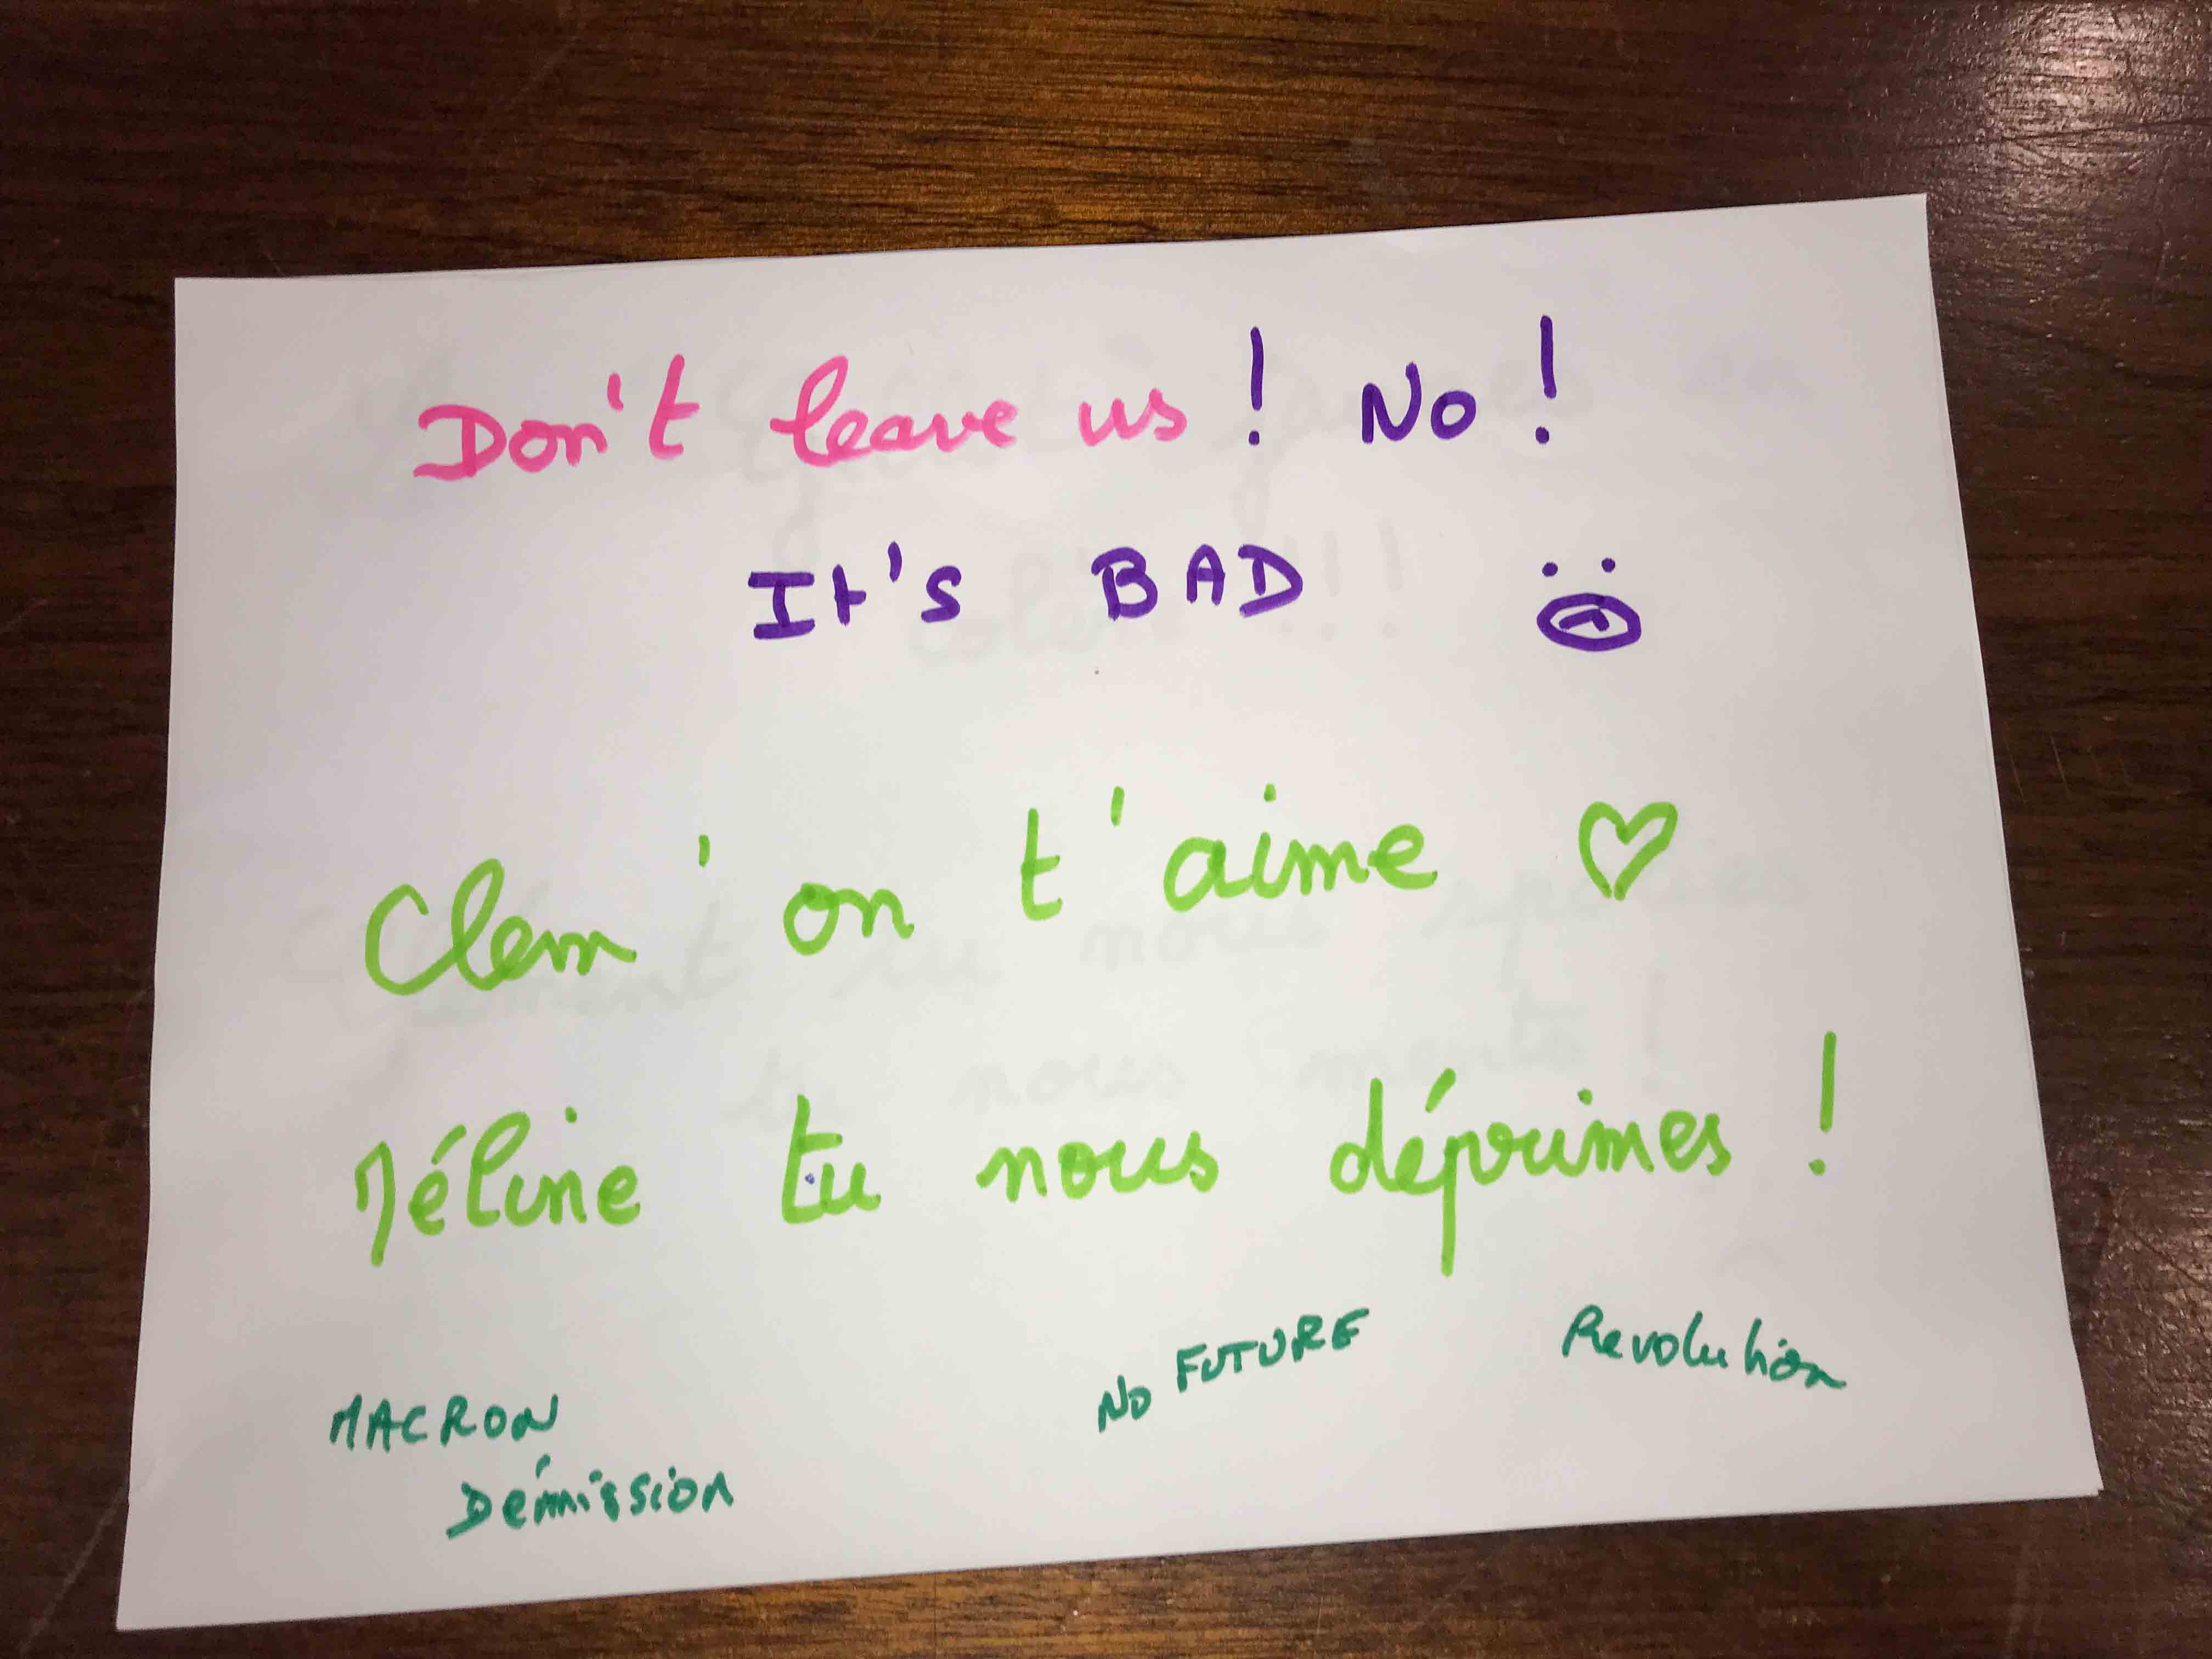 Don't leave us ! No !
It's BAD
Clem' on t'aime ♡
Méline tu nous déprimes !
MACRON
Démission
No FUTURE
Revolution